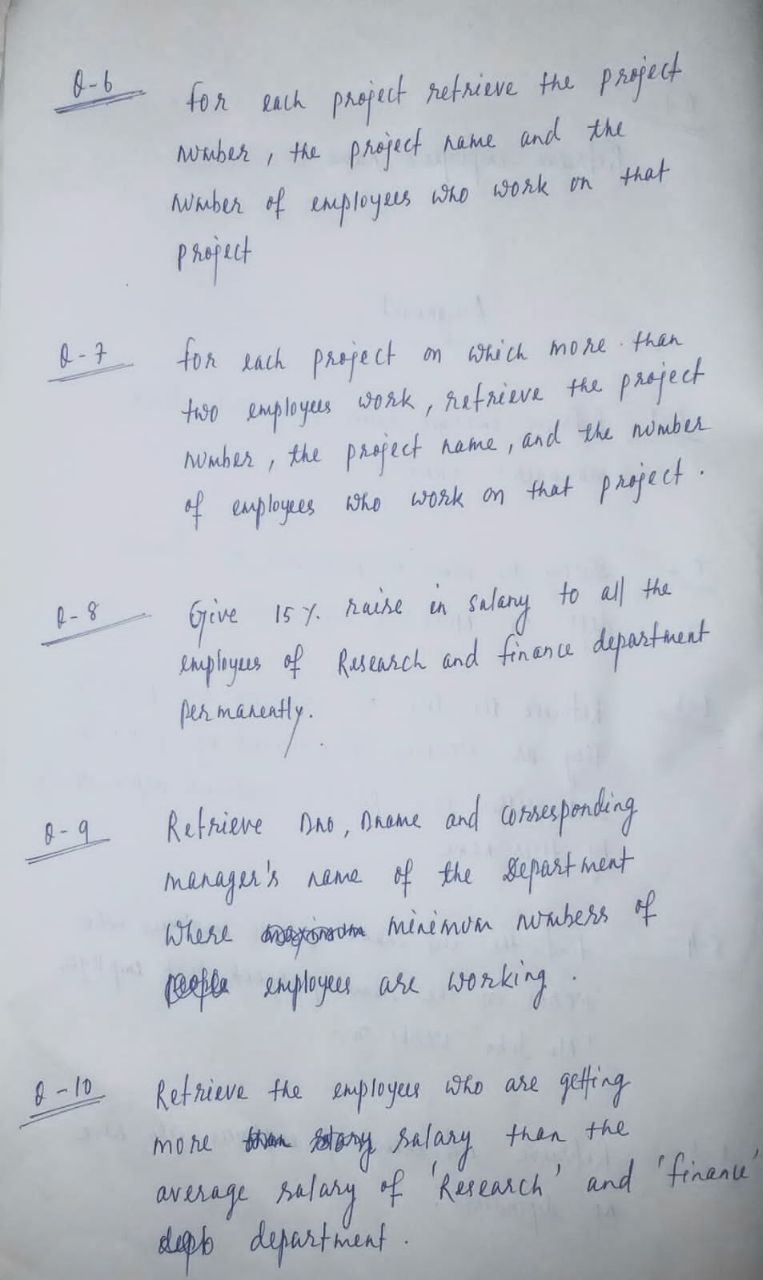 Q-6 For each project retrieve the project
number, the project name and the
number of employees who work on that
project
Q-7 For each project on which more than
two employees work, retrieve the project
number, the project name, and the number
of employees who work on that project.
Q-8 Give 15%. raise in salary to all the
employees of Research and finance department
permanently.
Q-9 Retrieve Dno, Dname and corresponding
manager's name of the Department
where maximum minimum numbers of
people employees are working.
Q-10 Retrieve the employees who are getting
more than salary salary than the
average salary of 'Research' and 'finance'
depto department.